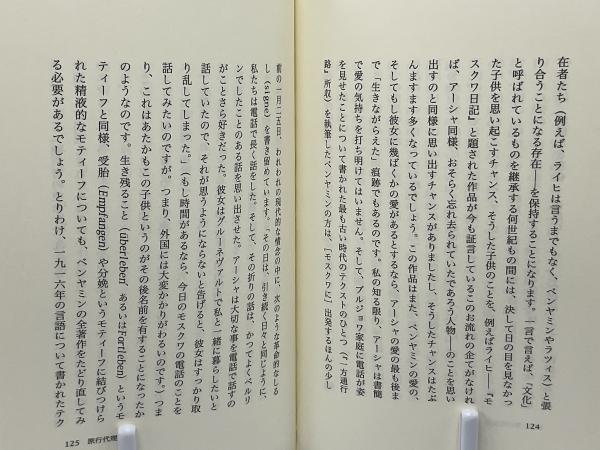 在者たち（例えば、ライヒは言うまでもなく、ベンヤミンやラツィス）と張
り合うことになる存在――を保持することになります。一言で言えば、「文化」
と呼ばれているものを継承する何世紀もの間には、決して日の目を見なかっ
た子供を思い起こすチャンス、そうした子供のことを、例えばライヒ――『モ
スクワ日記』と題された作品が今も証言しているこのお流れの企てがなけれ
ば、アーシャ同様、おそらく忘れ去られていたであろう人物――のことを思い
出すのと同様に思い出すチャンスがありましたし、そうしたチャンスはたぶ
んますます多くなっているでしょう。この作品はまた、ベンヤミンの愛の、
そしてもし彼女に幾ばくかの愛があるとするなら、アーシャの愛の最も後ま
で「生きながらえた」痕跡でもあるのです。私の知る限り、アーシャは書簡
で愛の気持ちを打ち明けてはいません。そして、ブルジョワ家庭に電話が姿
を見せたことについて書かれた最も古い時代のテクストのひとつ（「一方通行
路」所収）を執筆したベンヤミンの方は、「モスクワに」出発するほんの少し
124
前の一月二五日、われわれの現代的な情念の中に、次のような革命的なしる
し（signe）を書き留めています。「その日は、引き続く日々と同じように、
私たちは電話で長く話をした。そして、その折りの話は、かつてよくベルリ
ンでしたことのある話を思い出させた。アーシャは大切な事を電話で話すの
がことさら好きだった。彼女はグルーネヴァルトで私と一緒に暮らしたいと
話していたので、それが思うようにならないと告げると、彼女はすっかり取
り乱してしまった。」（もし時間があるなら、今日のモスクワの電話のことを
話してみたいのですが。つまり、外国には大変かかりがわるいのです。）つま
り、これはあたかもこの子供というのがその後名前を有することになったか
のようなのです。生き残ること（überleben あるいはFortleben）というモ
ティーフと同様、受胎（Empfangen）や分娩というモティーフに結びつけら
れた精液的なモティーフについても、ベンヤミンの全著作をたどり直してみ
る必要があるでしょう。とりわけ、一九一六年の言語について書かれたテク
125 旅行代理